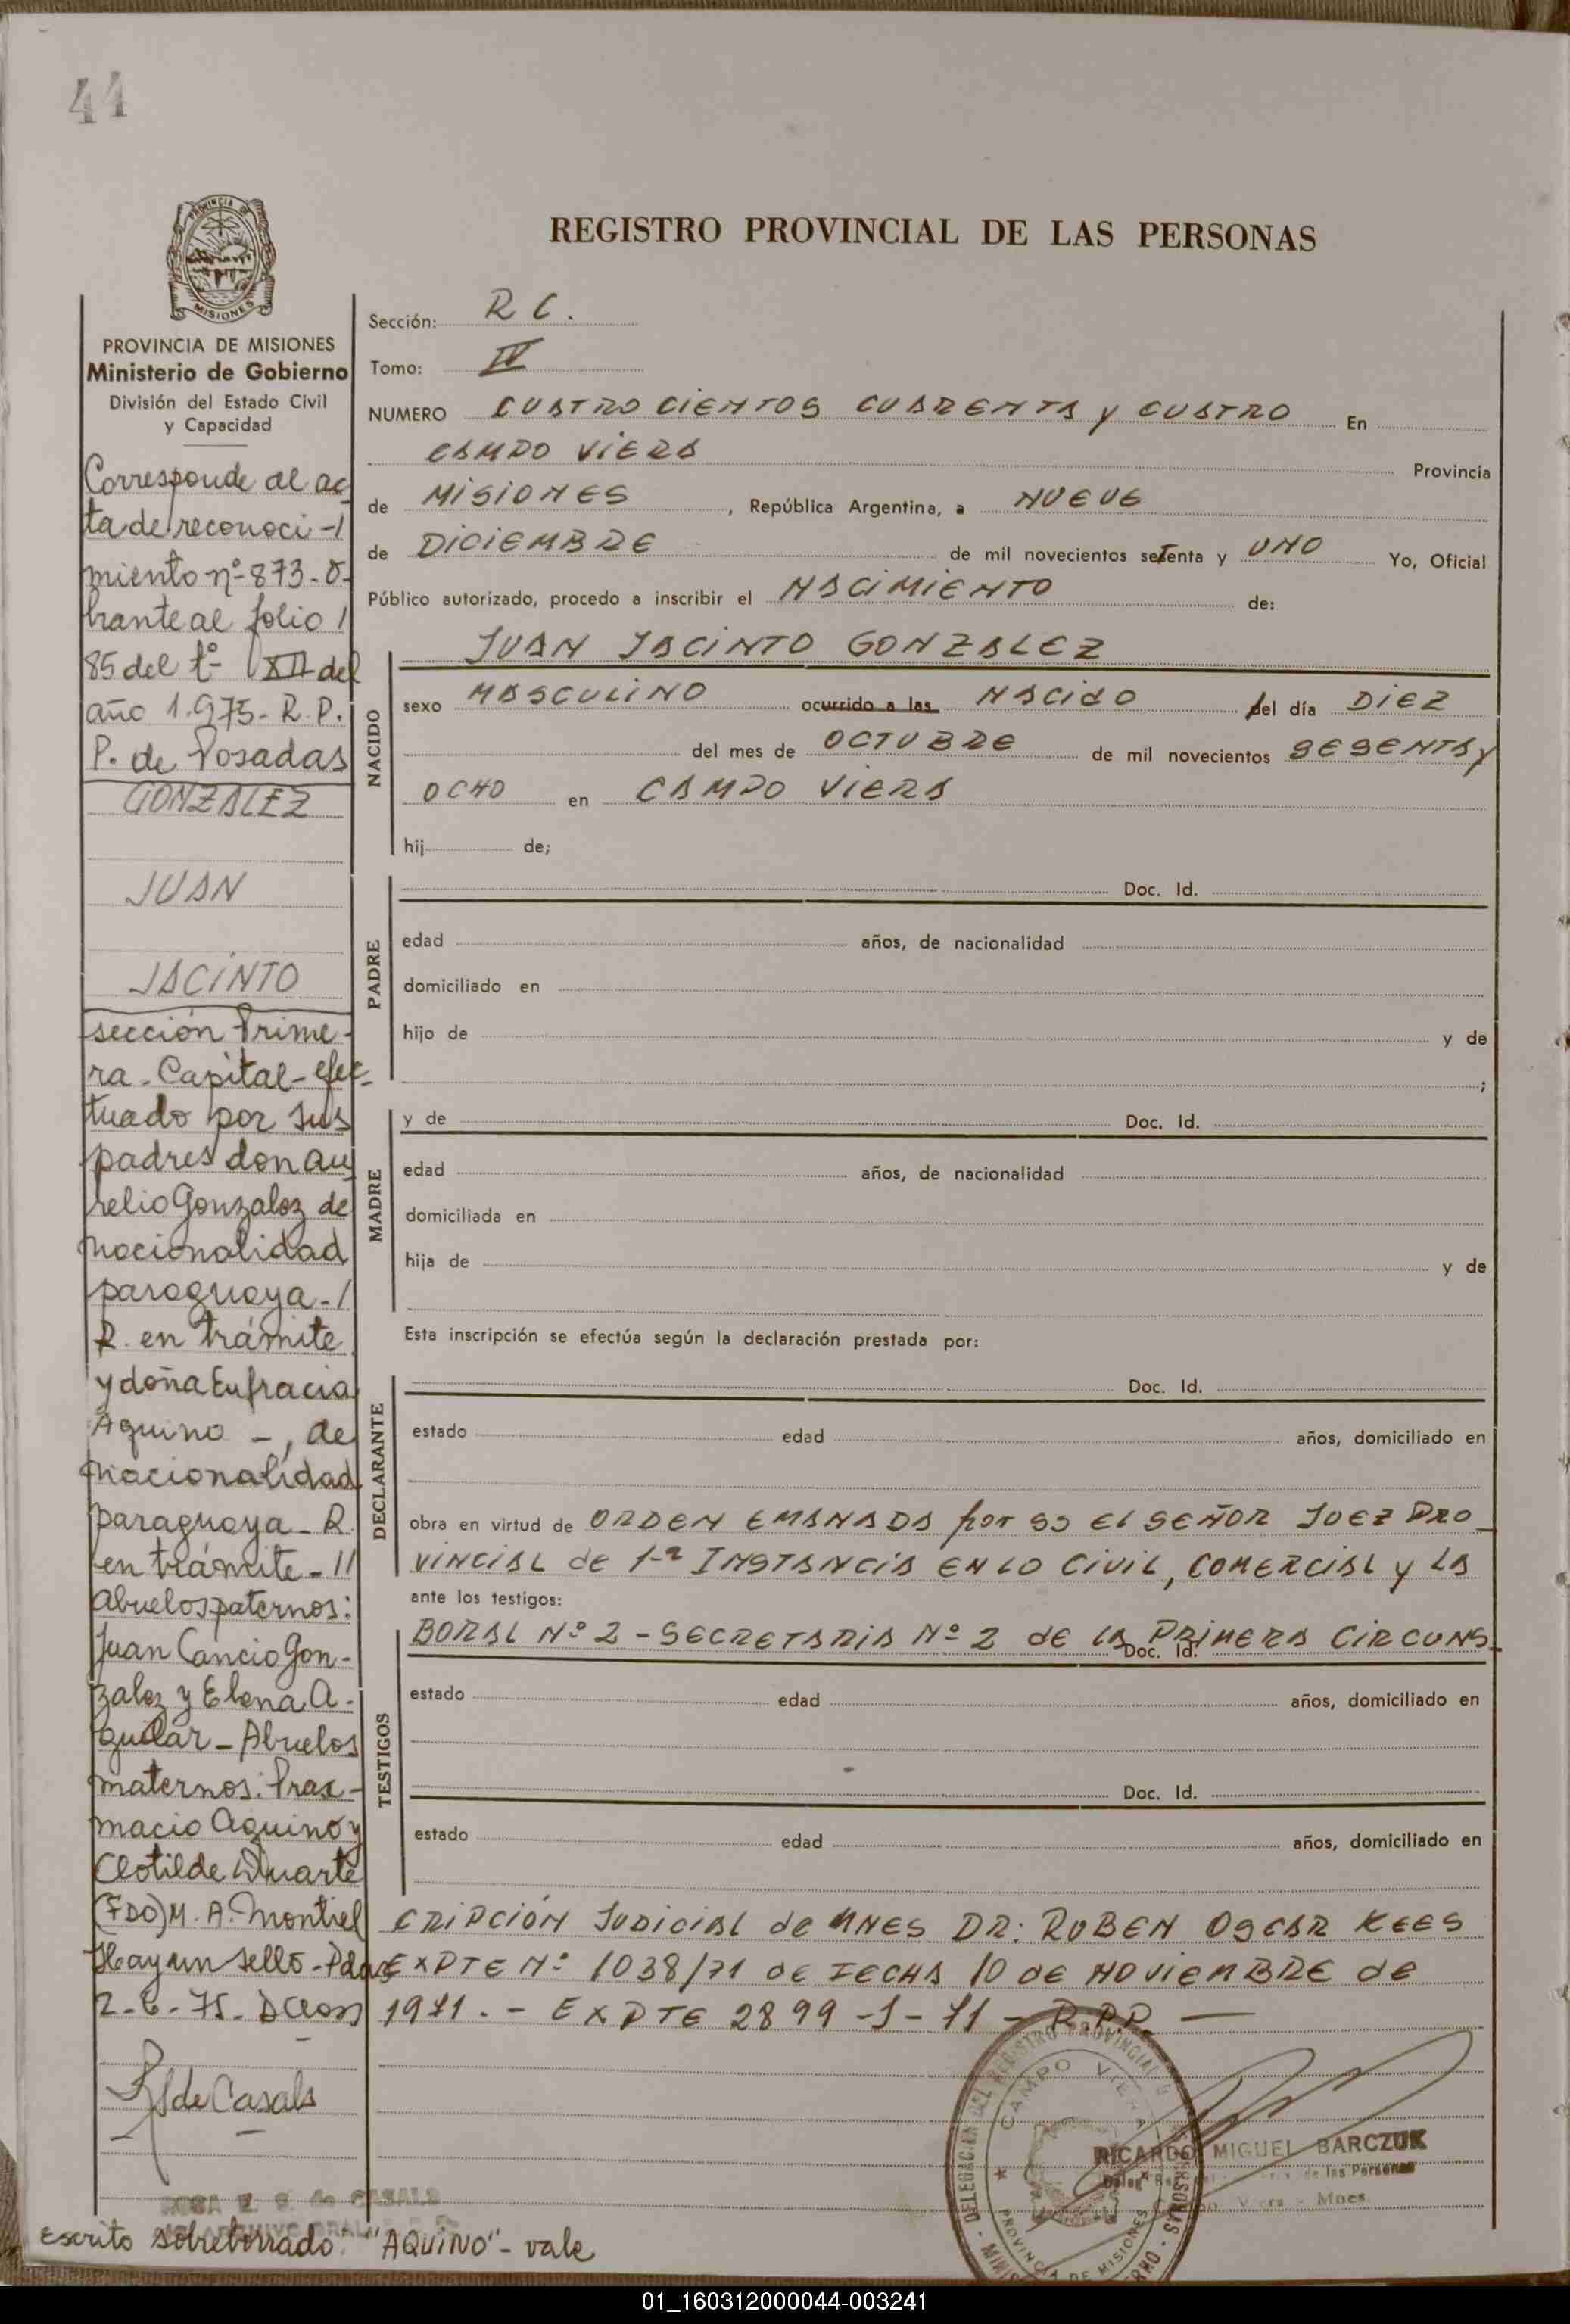 44
REGISTRO PROVINCIAL DE LAS PERSONAS
PROVINCIA DE
MISIONES
PROVINCIA DE MISIONES
Ministerio de Gobierno
División del Estado Civil
y Capacidad
Corresponde al ac
ta de reconoci-/
miento nº 873-o-
brante al folio /
85 del tº XII del
año 1.975- R. P.
P. de Posadas
GONZALEZ
JUAN
JACINTO
sección Prime-
ra - Capital - efec-
tuado por sus
padres don Au
relio Gonzalez de
nacionalidad
paraguaya - /
R. en trámite
y doña Eufracia
Aquino -, de
nacionalidad
paraguaya - R.
en trámite - //
Abuelos paternos:
Juan Cancio Gon-
zalez y Elena A-
guilar - Abuelos
maternos: Prax-
macio Aquino y
Clotilde Duarte
(FDO) M. A. Montiel
Hay un sello - Pdas
2-6-75-
R S de Casals
ROSA E. S. de CASALS
Sección: R C.
Tomo: IV
NUMERO CUATRO CIENTOS CUARENTA y CUATRO En
CAMPO VIERA Provincia
de MISIONES, República Argentina, a NUEVE
de DICIEMBRE de mil novecientos setenta y UNO Yo, Oficial
Público autorizado, procedo a inscribir el NACIMIENTO de:
JUAN JACINTO GONZALEZ
NACIDO
sexo MASCULINO ocurrido a las NACIDO del día DIEZ
del mes de OCTUBRE de mil novecientos SESENTA y
OCHO en CAMPO VIERA
hij de;
PADRE
Doc. Id.
edad años, de nacionalidad
domiciliado en
hijo de y de
;
MADRE
y de Doc. Id.
edad años, de nacionalidad
domiciliada en
hija de y de
Esta inscripción se efectúa según la declaración prestada por:
DECLARANTE
Doc. Id.
estado edad años, domiciliado en
obra en virtud de ORDEN EMANADA por SS El SEÑOR JUEZ PRO_
VINCIAL de 1-ª INSTANCIA EN LO CIVIL, COMERCIAL y LA
ante los testigos:
BORAL Nº 2 - SECRETARIA Nº 2 de LA PRIMERA CIRCUNS_
Doc. Id.
TESTIGOS
estado edad años, domiciliado en
Doc. Id.
estado edad años, domiciliado en
CRIPCIÓN JUDICIAL de MNES DR: RUBEN OSCAR KEES
EXPTE Nº 1038/71 de FECHA 10 de NOVIEMBRE de
1971. - EXPTE 2899-J-71 - R.P.P. —
DELEGACION DEL REGISTRO PROVINCIAL DE LAS PERSONAS
CAMPO VIERA
PROVINCIA DE MISIONES
RICARDO MIGUEL BARCZUK
de las Personas
Campo Viera - Mnes
Escrito sobreborrado: "AQUINO" - vale
01_160312000044-003241